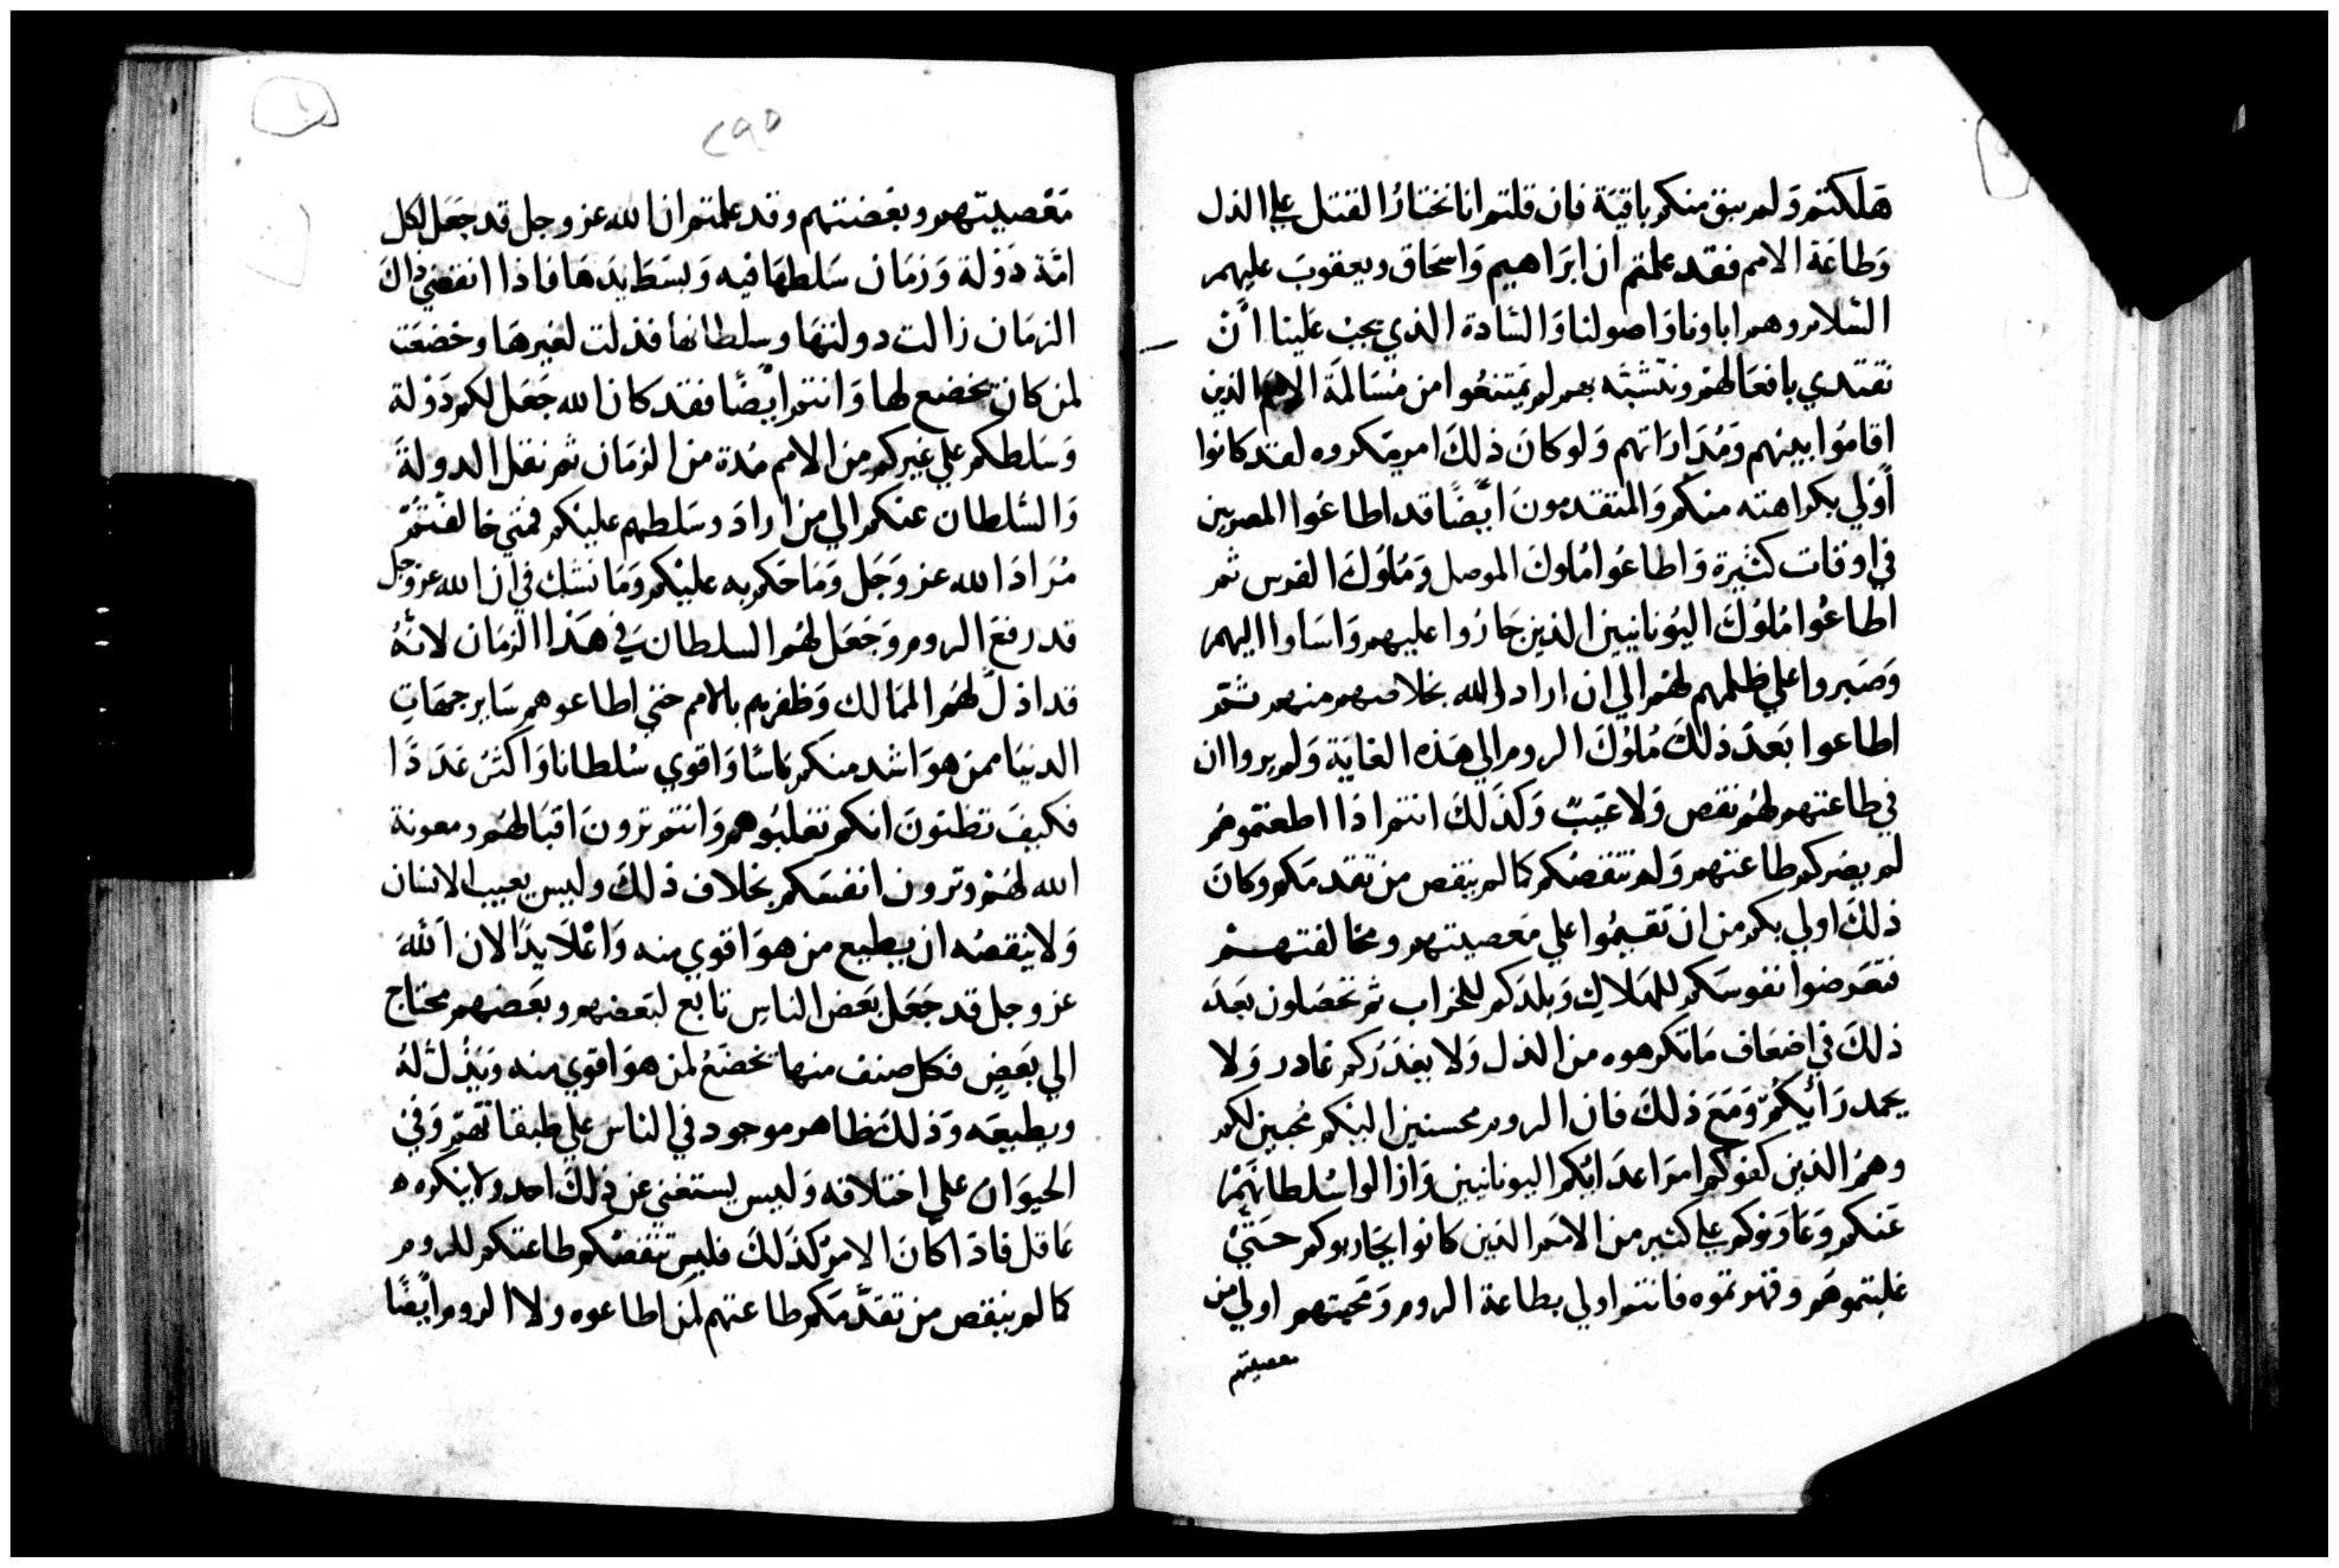 هَلكتم وَلم يبق منكم باقيَة فان قلتم انا نختارُ القتل علي الذل
وَطاعَة الامم فقد علمتم ان ابرَاهيم وَاسحَاق ويعقوبَ عليهم
السّلام وهم اباونا وَاصولنا وَالسّادة الذي يجب عَلينا اَنْ
نقتدي بافعَالهمْ ونتشبّه بهم لم يمَتنعُوا من مُسَالمَة الامم الذين
اقامُوا بينهم وَمُدَارَاتهم وَلو كان ذلكَ امر مكروه لقد كانوا
اَوْلي بكراهته منكم وَالمتقدمونَ ايضًا قد اطاعُوا المصريين
في اوقات كثيرة وَاطاعُوا مُلوكَ الموصل وَمُلوُكَ الفرس ثم
اطاعُوا مُلوُكَ اليوُنانيين الذين جَارُوا عليهم وَاسَاوا اليهم
وَصَبروا علي ظلمهم لهُم الي ان اراد الله بخلاصهم منهم ثم
اطاعوا بَعدَ ذلكَ مُلوُكَ الروم الي هَذه الغايَة وَلم يروا ان
في طاعتهم لهُم نقص وَلا عَيبٌ وَكذَلكَ انتم اذَا اطعتموهُم
لم يضركم طاعتهم وَلم تنقصُكم كما لم ينقص من تقدمَكم وكانَ
ذلكَ اولي بكم من ان تَقيمُوا علي مَعصيتهم ومخالفتهم
فتعَرضوا نفوسَكم للهَلاك وَبلدَكم للخراب ثم تحصَلون بَعدَ
ذلكَ في اضعَاف مَا تكرهوه من الذل وَلا يعذرَكم عَادر وَلا
يحمد رَأيكُمْ وَمَعَ ذلكَ فان الروم محسنين اليكم مُحبين لكم
وهمُ الذين كفوكم امرَ اعدَايكم اليونانيين وَازالوا سُلطانهَمْ
عَنكم وَعَاوَنوكم علي كثير من الامَم الذين كانوا يحَاربوكم حَتيْ
غلبتموهَم وقهرتموه فانتم اولي بطاعة الروم وَمحَبتهم اولي من
معصيتهم
٢٩٥
مَعْصيتهم وبغضتهم وقد علمتم ان الله عز وجل قد جَعَل لكل
امّة دَوْلة وَزمَان سَلطهَا فيه وَبسَط يدَهَا فاذا انقضي ذاكَ
الزمَان زالت دولتهَا وسلطانها فذلت لغيرهَا وخضعَت
لمن كان تخضع لها وَانتم ايْضًا فقد كان الله جَعَل لكم دَوْلة
وَسَلطكم علي غيركم من الامم مُدة من الزمَان ثم نقل الدولةَ
وَالسّلطان عنكم الي من ارادَ وسَلطهم عليكم فمتي خالفتُمْ
مُرَادَ الله عز وَجَل وَمَا حَكم به عليكم وَمَا نشك في ان الله عز وجل
قد رفعَ الروم وَجَعَل لهُم السلطان في هَذا الزمَان لانهُ
قد اذلّ لهُم الممَالك وَظفرهم بالامم حتي اطاعوهم سَاير جهَات
الدنيَا ممن هوَ اشد منكم بَاسًا وَاقوي سُلطانا وَاكثَرُ عَدَدًا
فكيفَ تظنونَ انكم تغلبُوهم وَانتم ترونَ اقبَالهُم ومعونة
الله لهُمْ وترون انفسَكم بخلاف ذلكَ وليس يعيب الانسان
وَلا ينقصُه ان يطيع من هوَ اقوي منه وَاعْلَا يدًا لان اَللهَ
عز وجل قد جَعَل بَعض الناس تابع لبَعضهم وبعَضهم محتاج
الي بَعضٍ فكل صنف منها تخضَعُ لمن هوَ اقوي منه وَيَذُلّ لهُ
ويطيعَه وَذلكَ ظاهر موجود في الناس علي طبقاتهَمْ وَفي
الحيوَان علي اختلافه وَليس يستغني عن ذلكَ احد ولا ينكره
عَاقل فاذا كانَ الامرُ كذَلكَ فليس تنقصُكم طاعتكم للروم
كما لم ينقص من تقدّمَكم طاعتهم لمن اطاعوه ولا الروم ايضًا